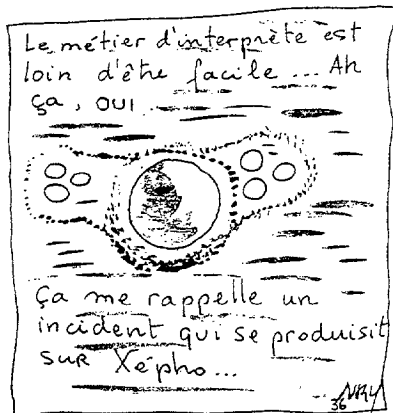 Le métier d'interprète est
loin d'être facile ... Ah
ça, oui
Ça me rappelle un
incident qui se produisit
sur Xépho...
36